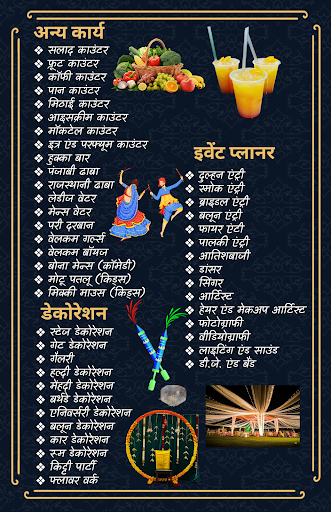 अन्य कार्य
❖ सलाद काउंटर
❖ फ्रूट काउंटर
❖ कॉफी काउंटर
❖ पान काउंटर
❖ मिठाई काउंटर
❖ आइसक्रीम काउंटर
❖ मॉकटेल काउंटर
❖ इत्र एंड परफ्यूम काउंटर
❖ हुक्का बार
❖ पंजाबी ढाबा
❖ राजस्थानी ढाबा
❖ लेडीज वेटर
❖ मेन्स वेटर
❖ परी दरबान
❖ वेलकम गर्ल्स
❖ वेलकम बॉयज
❖ बोना मेन्स (कॉमेडी)
❖ मोटू पतलू (किड्स)
❖ मिक्की माउस (किड्स)
डेकोरेशन
❖ स्टेज डेकोरेशन
❖ गेट डेकोरेशन
❖ गैलरी
❖ हल्दी डेकोरेशन
❖ मेहंदी डेकोरेशन
❖ बर्थडे डेकोरेशन
❖ एनिवर्सरी डेकोरेशन
❖ बलून डेकोरेशन
❖ कार डेकोरेशन
❖ रूम डेकोरेशन
❖ किट्टी पार्टी
❖ फ्लावर वर्क
इवेंट प्लानर
❖ दुल्हन एंट्री
❖ स्मोक एंट्री
❖ ब्राइडल एंट्री
❖ बलून एंट्री
❖ फायर एंटी
❖ पालकी एंट्री
❖ आतिशबाजी
❖ डांसर
❖ सिंगर
❖ आर्टिस्ट
❖ हेयर एंड मेकअप आर्टिस्ट
❖ फोटोग्राफी
❖ वीडियोग्राफी
❖ लाइटिंग एंड साउंड
❖ डी.जे. एंड बैंड